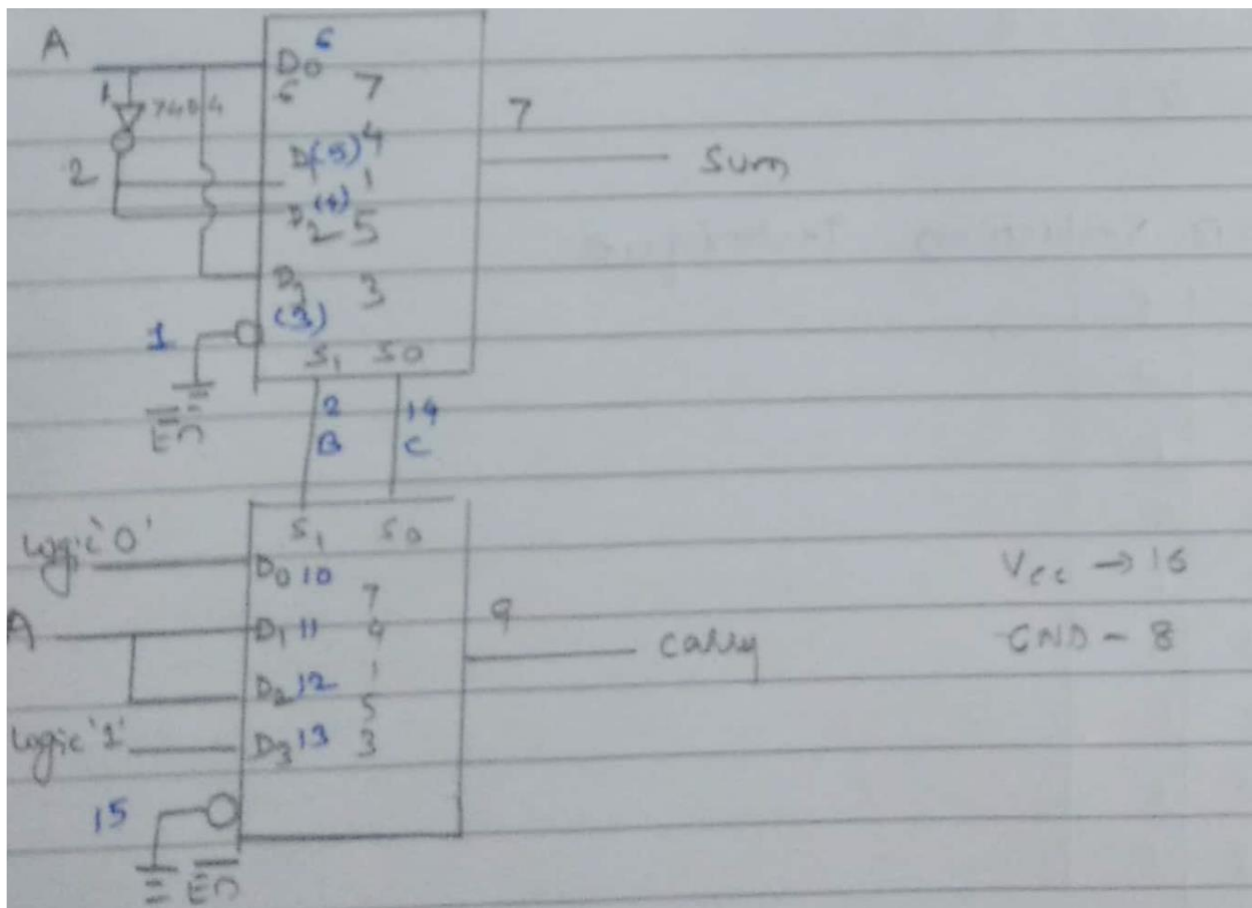 A
D0 6
6 7
1 7404
4
D(5)
2
1
D2 (4) 5
7
Sum
D3 3
(3)
1
S1 S0
En
2 14
B C
S1 S0
Logic '0'
D0 10
7
A
D1 11 4
9
Carry
D2 12 1
5
Logic '1'
D3 13 3
15
En
Vcc → 16
GND - 8